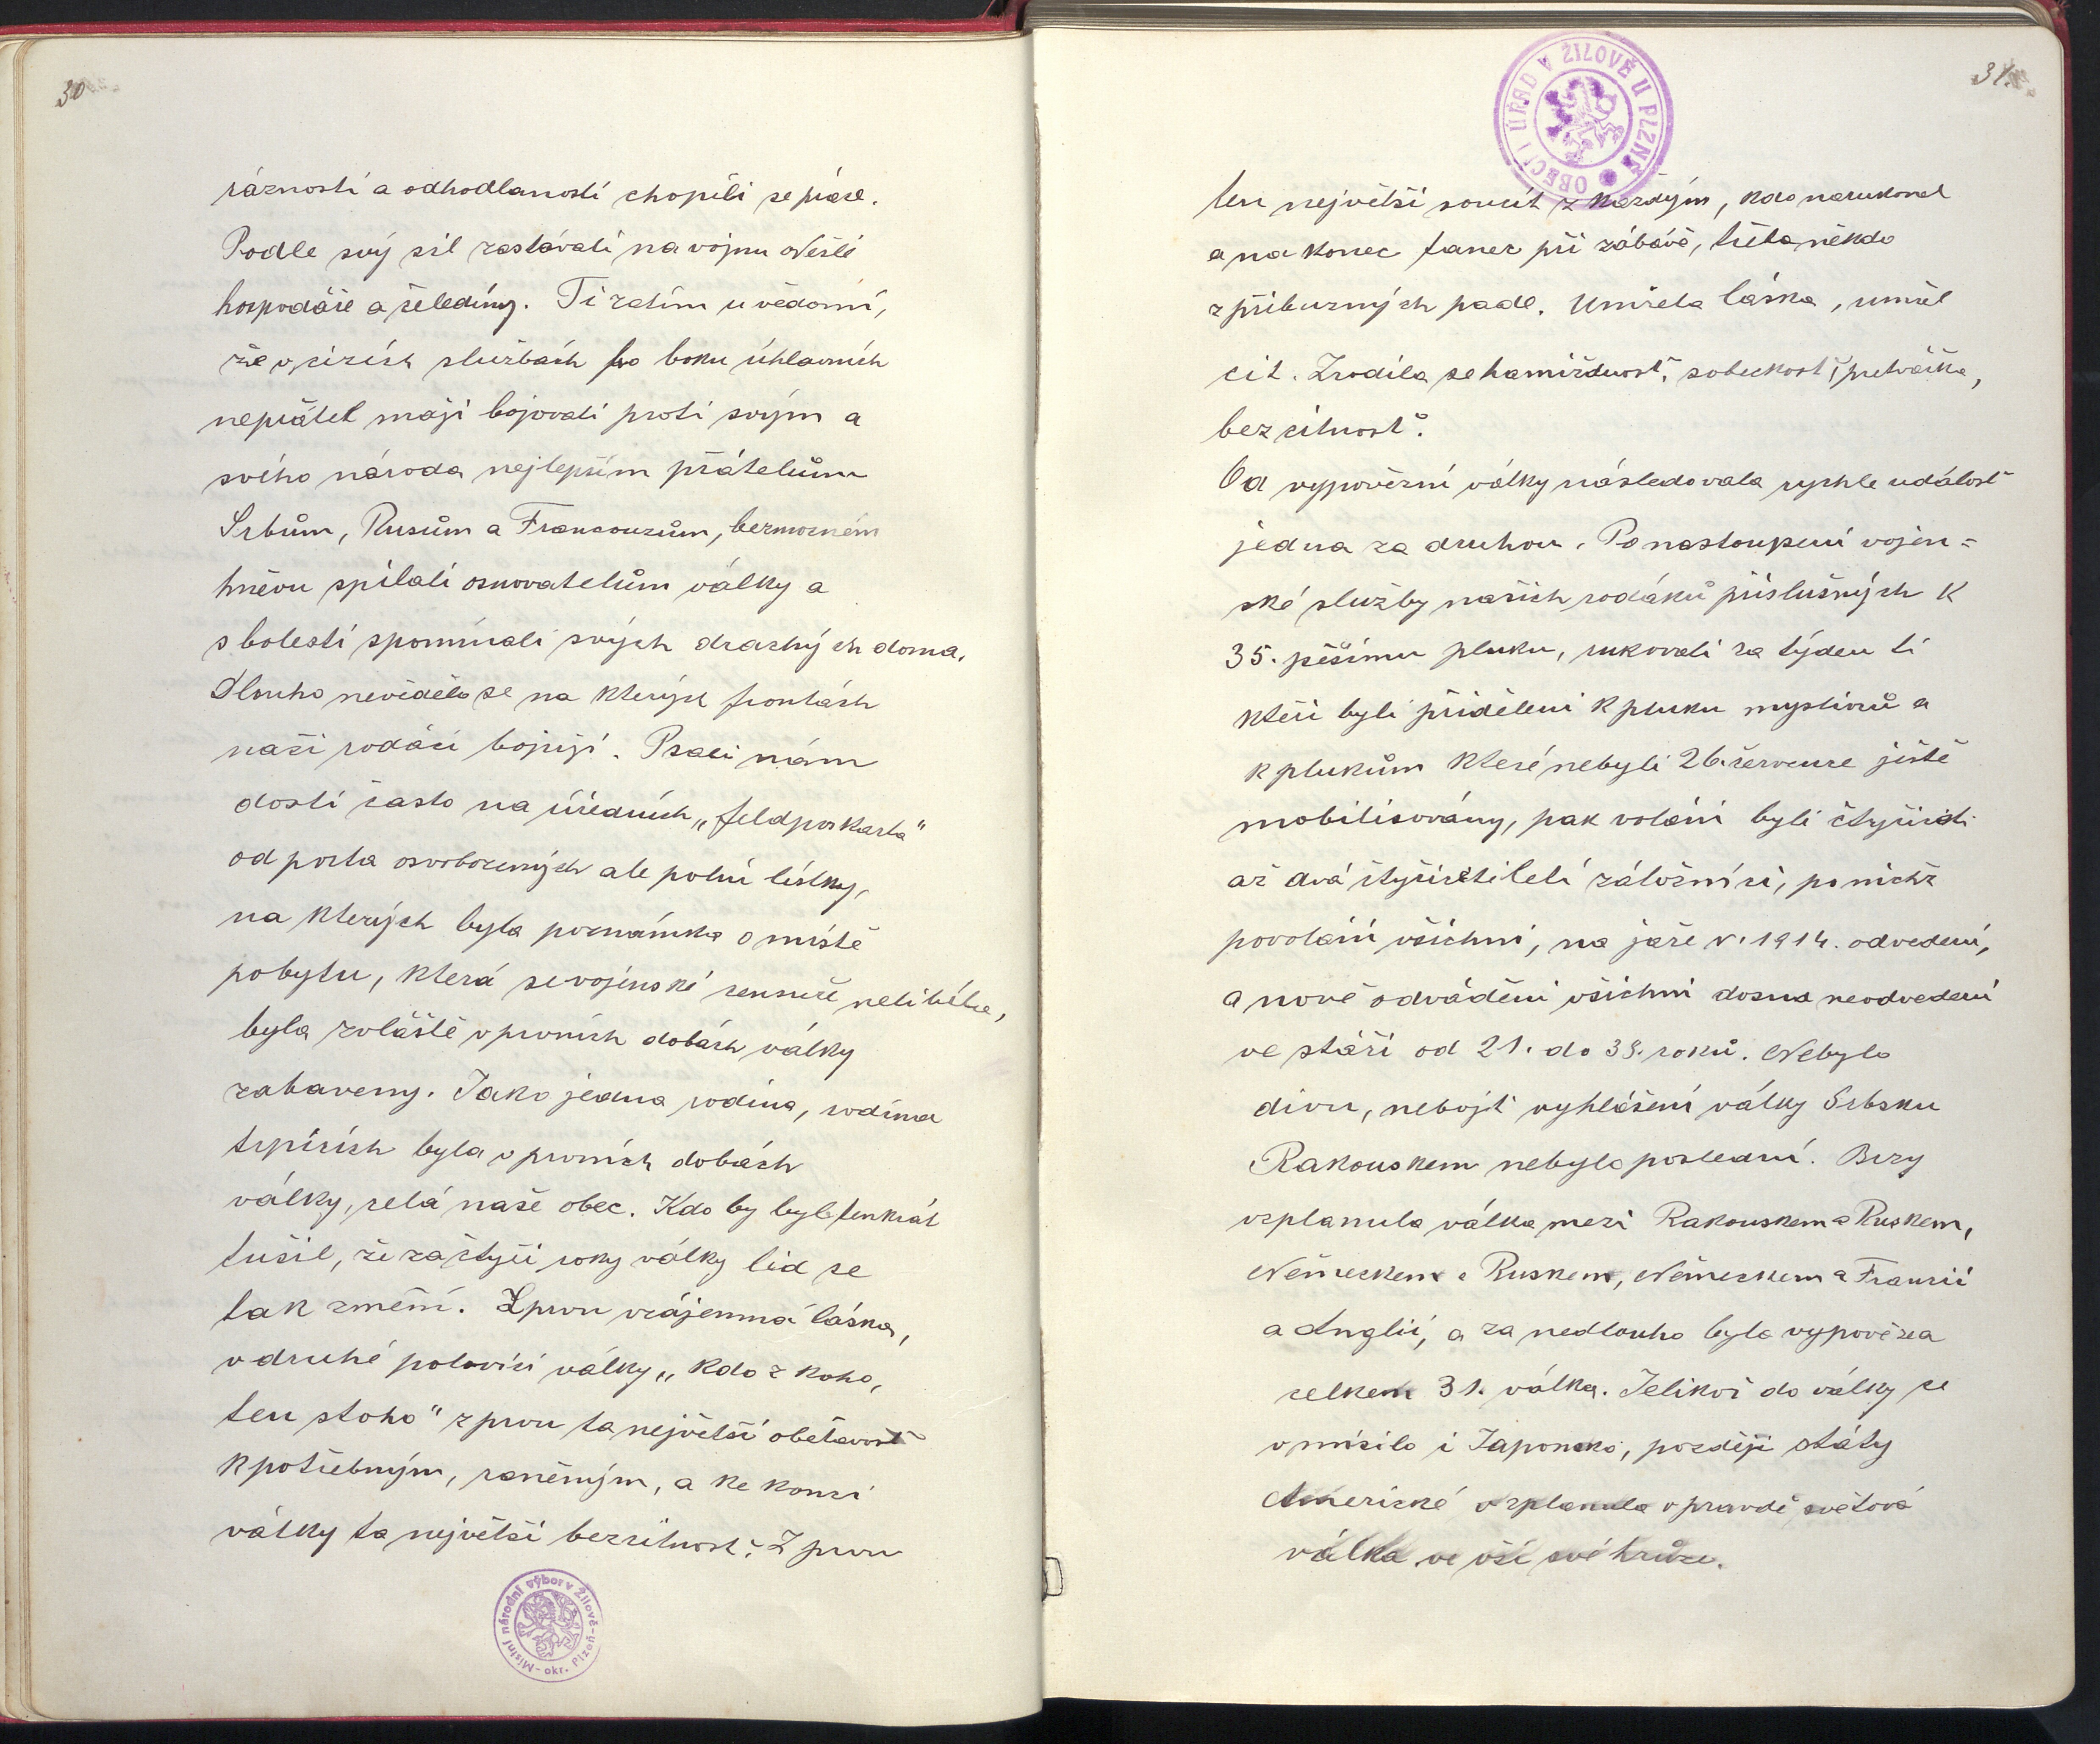 30
rázností a odhodlaností chopili se práce.
Podle svý sil zastávali na vojnu odešlé
hospodáře a čeledíny. Ti zatím u vědomí,
že v cizích službách po boku úhlavních
nepřátel mají bojovati proti svým a
svého národa nejlepším přátelům
Srbům, Rusům a Francouzům, bezmocném
hněvu spílali osnovatelům války a
s bolestí spomínali svých drachých doma.
Dlouho nevědělo se na kterých frontách
naši rodáci bojují. Psali nám
dosti často na úředních „feldposkarta"
od porta osvobozených ale polní lístky,
na kterých byla poznámka o místě
pobytu, která se vojenské censuře nelíbila,
byla zvláště v prvních dobách války
zabaveny. Jako jedna rodina, rodina
trpících byla v prvních dobách
války, celá naše obec. Kdo by byl tenkrát
tušil, že za čtyři roky války lid se
tak změní. Zprvu vzájemná láska,
v druhé polovici války „Kdo z koho,
ten stoho" zprvu ta největší obětavosť
k potřebným, raněným, a ke konci
války ta největší bezcitnosť. Z prvu
Místní národní výbor v Žilově - okr. Plzeň
31.
OBECNÍ ÚŘAD V ŽILOVĚ U PLZNĚ
ten největší soucit z každým, kdo narukoval
a na konec tanec při zábavě, třeba někdo
z příbuzných padl. Umřela láska, umřel
cit. Zrodila se hamižnosť, sobeckosť, přetvářka,
bezcitnosť.
Od vypovězní války následovala rychle událosť
jedna za druhou. Po nastoupení vojen=
ské služby našich rodáků příslušných k
35. pěšímu pluku, rukovali za týden ti
kteří byli přiděleni k pluku myslivců a
k plukům které nebyli 26. července ještě
mobilisovány, pak voláni byli čtyřicti
až dvá čtyřicetiletí záložníci, po nichž
povoláni všichni, na jaře r. 1914. odvedení,
a nově odváděni všichni dosna neodvedení
ve stáří od 21. do 38. roků. Nebylo
divu, nebojť vyhlášení války Srbsku
Rakouskem nebylo poslední. Brzy
vzplanula válka mezi Rakouskem a Ruskem,
Německem a Ruskem, Německem a Francií
a Anglií, a za nedlouho byla vypovězea
celkem 31. válka. Jelikož do války se
vmísilo i Japonsko, později státy
Americké vzplanula v pravdě světová
válka ve vší své hrůze.